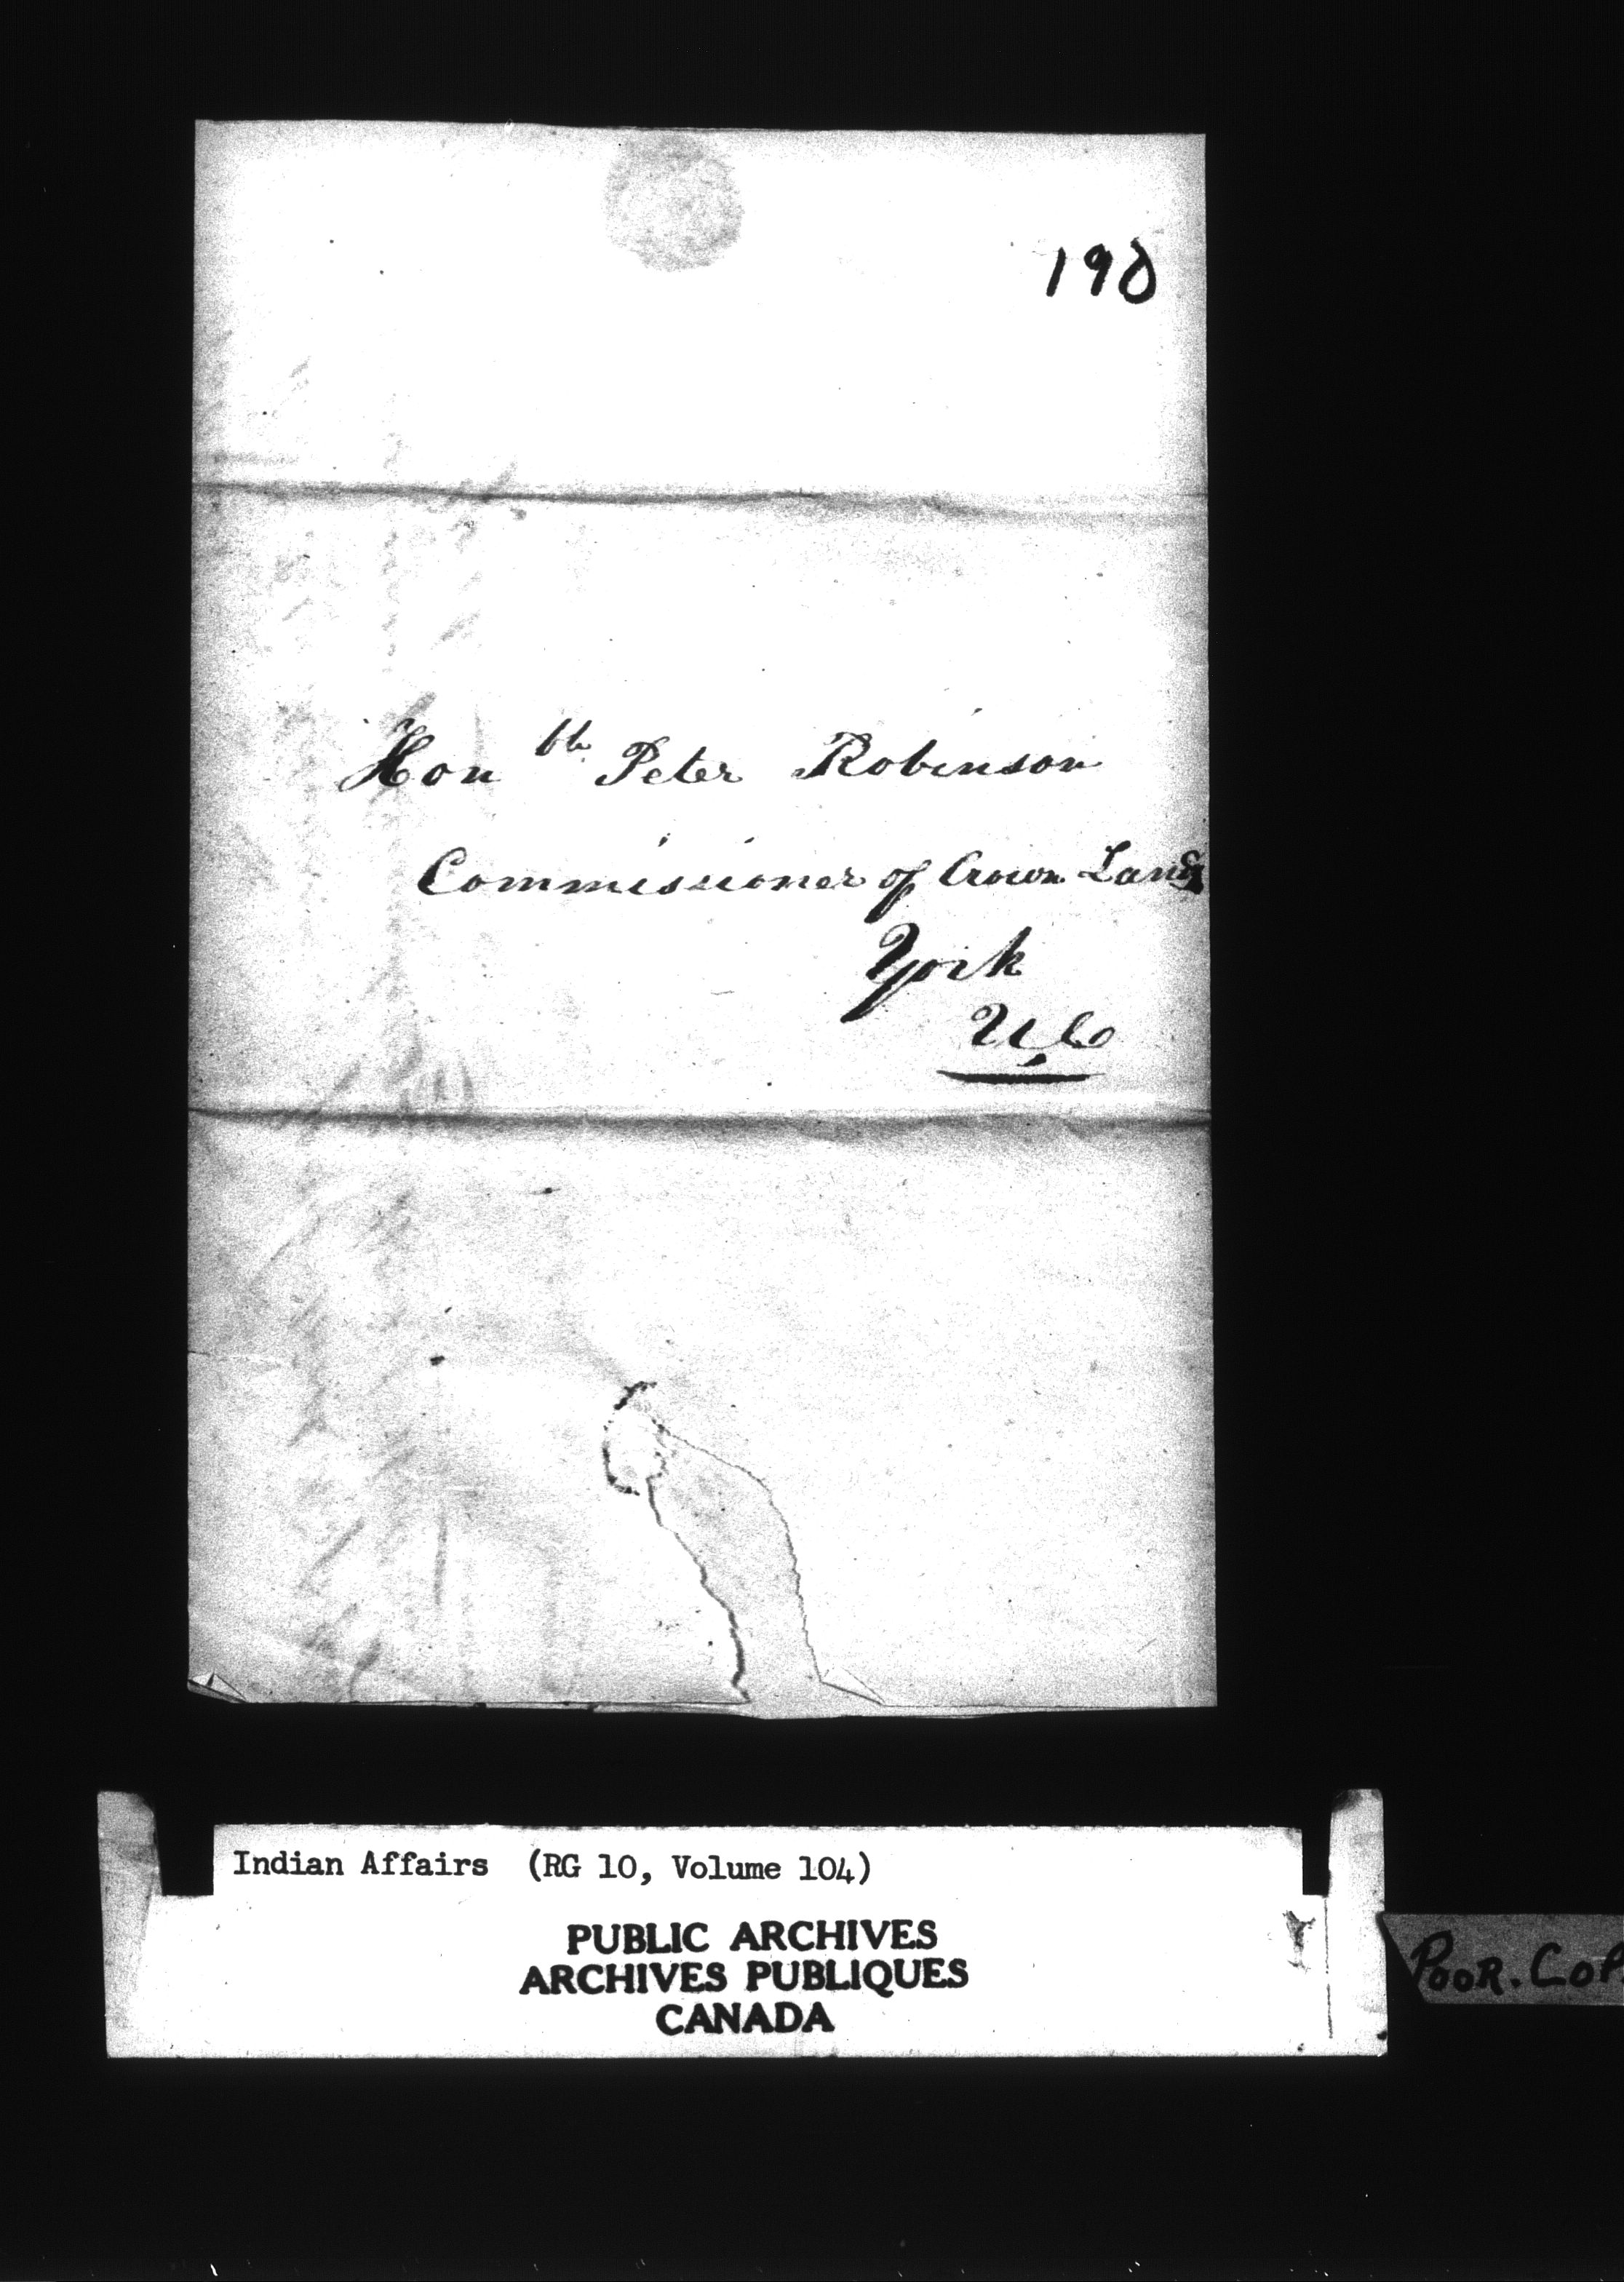 190
Honble Peter Robinson
Commissioner of Crown Lands
York
U, Co
Indian Affairs (RG 10, Volume 104)
PUBLIC ARCHIVES
ARCHIVES PUBLIQUES
CANADA
POOR. COP